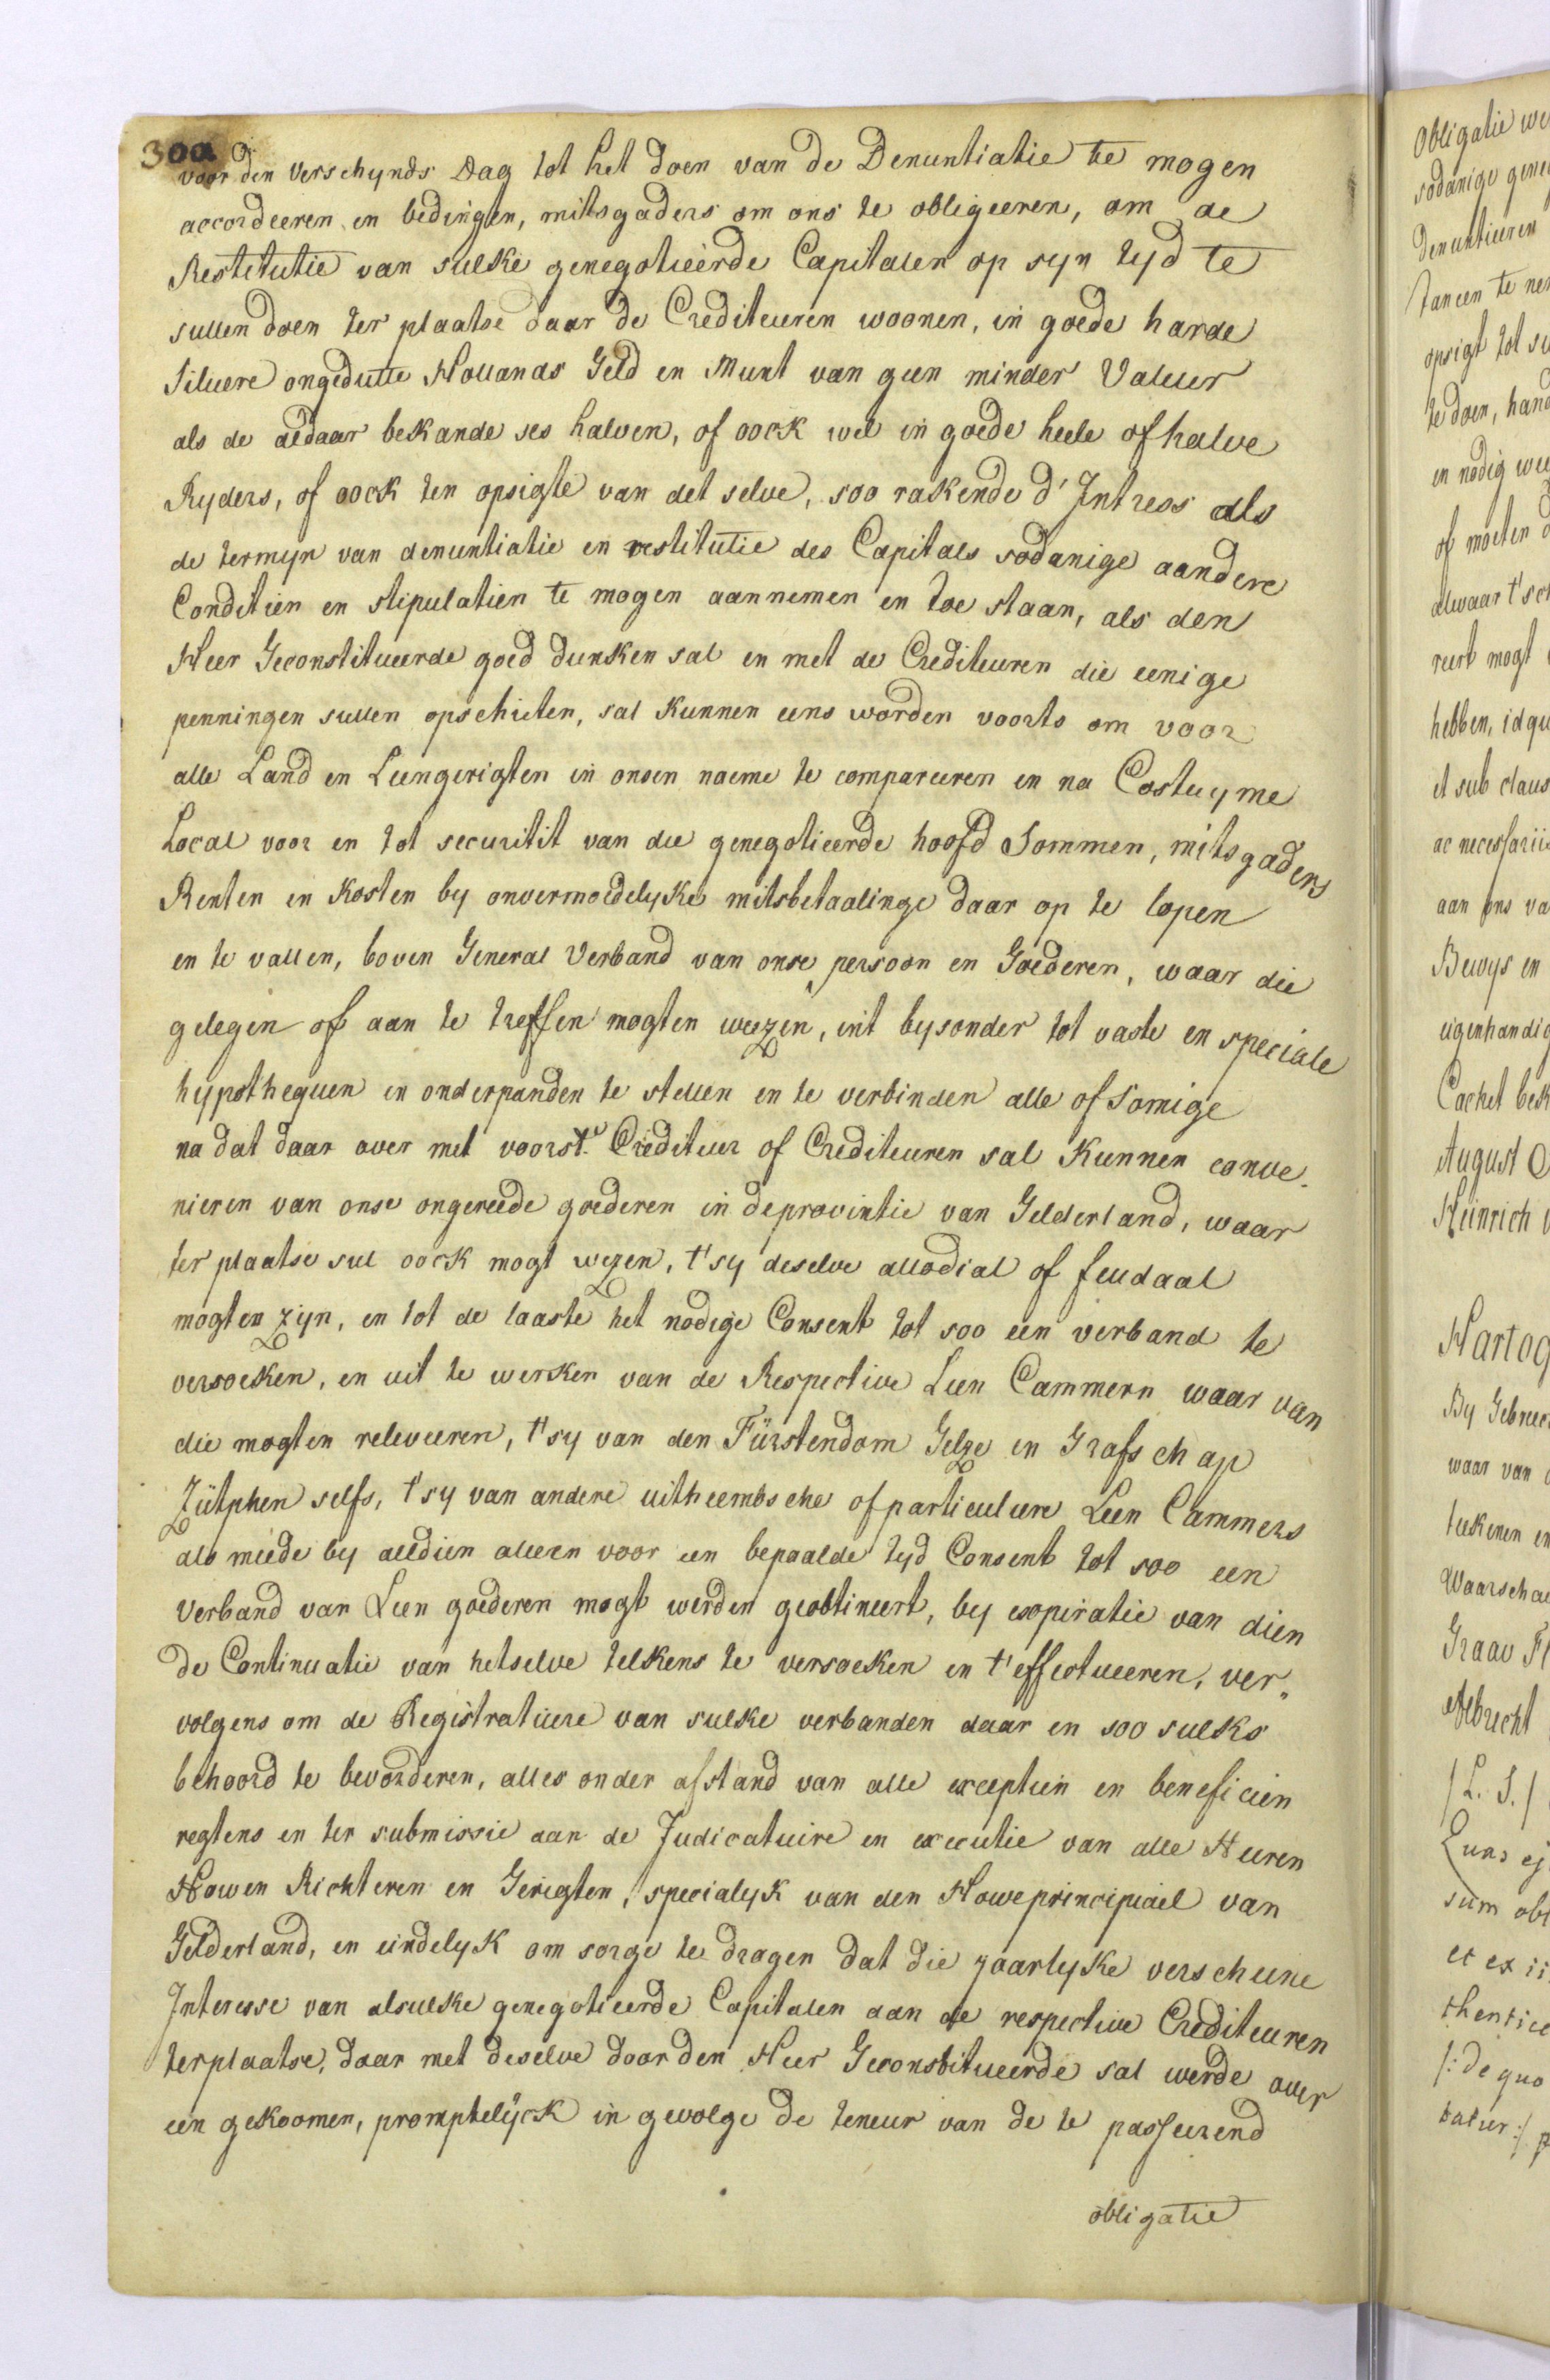 30a
voor den verschynds Dag tot het doen van de Denuntiatie te mogen
accordeeren en bedingen, mitsgaders om ons te obligeeren, om de
Restitutie van sulke genegotieerde Capitalen op syn tyd te
sullen doen ter plaatse daar de Crediteuren woonen, in goede harde
Siluere ongedutte Hollands Geld en Munt van geen minder Valeur
als de aldaar bekande ses halven, of oock wel in goede heele of halve
Ryders, of oock ten opsigte van det selve, soo rakende d' Intress als
de termyn van denuntiatie en restitutie des Capitals sodanige aandere
Conditien en stipulatien te mogen aannemen en toe staan, als den
Heer Geconstitueerde goed dunken sal en met de Crediteuren die eenige
penningen sullen opschieten, sal kunnen eens worden voorts om voor
alle Land en Leengerigten in onsen naeme te compareeren en na Costuyme
Local voor en tot securitit van die genegotieerde hoofd Sommen, mitsgaders
Renten en Kosten by onvermoedelyke mitsbetaalinge daar op te lopen
en te vallen, boven General Verband van onse persoon en Goederen, waar die
gelegen of aan te treffen mogten weezen, int bysonder tot vaste en speciale
hypothequen en onderpanden te stellen en te verbinden alle of Somige
na dat daar over met voorst.e Crediteur of Crediteuren sal Kunnen conve-
nieren van onse ongereede goederen in deprovintie van Gelderland, waar
ter plaatse sul oock mogt wezen, t'sy deselve allodial of feudaal
mogten zijn, en tot de laaste het nodige Consent tot soo een verband te
versoeken, en uit te werken van de Respective Leen Cammern waar van
die mogten releveeren, t'sy van den Fürstendom Gelre en Grafschap
Zütphen selfs, t'sy van andere uitheembsche of particuliere Leen Cammers
als meede by aldien alleen voor een bepaalde tyd Consent tot soo een
Verband van Leen goederen mogt werden geobtineert, by exspiratie van dien
de Continuatie van hetselve telkens te versoeken en t'effectueeren, ver-
volgens om de Registratuere van sulke verbanden daar en soo sulks
behoord te bevorderen, alles onder afstand van alle exceptien en beneficien
regtens en ter submissie aan de Judicatuire en executie van alle Heeren
Howen Richteren en Gerigten, specialyk van den Howeprincipiael van
Gelderland, en eindelyk om sorge te dragen dat die jaarlyke verscheene
Interesse van alsulke genegotieerde Capitalen aan de respective Crediteuren
terplaatse, daar met deselve door den Heer Geconstitueerde sal werde over
een gekoomen, promptelijck in gevolge de teneur van de te passeerend
obligatie
Obligatie
sodanige
Denuntieeren
tancen te
opsigt tot
te doen,
en nodig
of moeten
alwaar
mogt
hebben,
et sub
ac necessariis
aan ons
Bewys en
eigenhandig
Cachet
August
Heinrich
Hartog
By
waar van
teekenen
Waarschau
Graav
Albrecht
/ L. S. /
sum
et ex
/: de quo